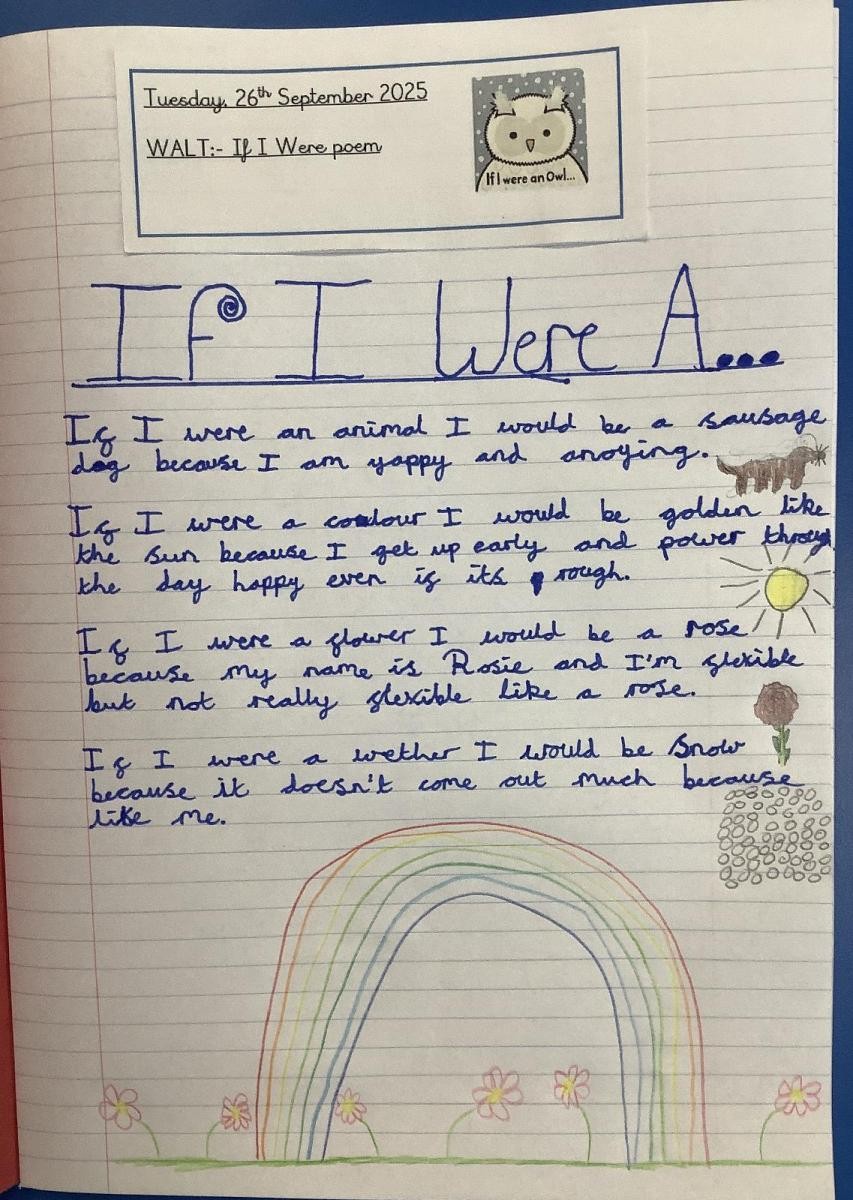 Tuesday, 26th September 2025
WALT:- If I Were poem
If I were an Owl...
If I Were A...
If I were an animal I would be a sausage
dog because I am yappy and anoying.
If I were a coulour I would be golden like
the sun because I get up early and power through
the day happy even if its rough.
If I were a flower I would be a rose
because my name is Rosie and I'm flexible
but not really flexible like a rose.
If I were a wether I would be snow
because it doesn't come out much because
like me.